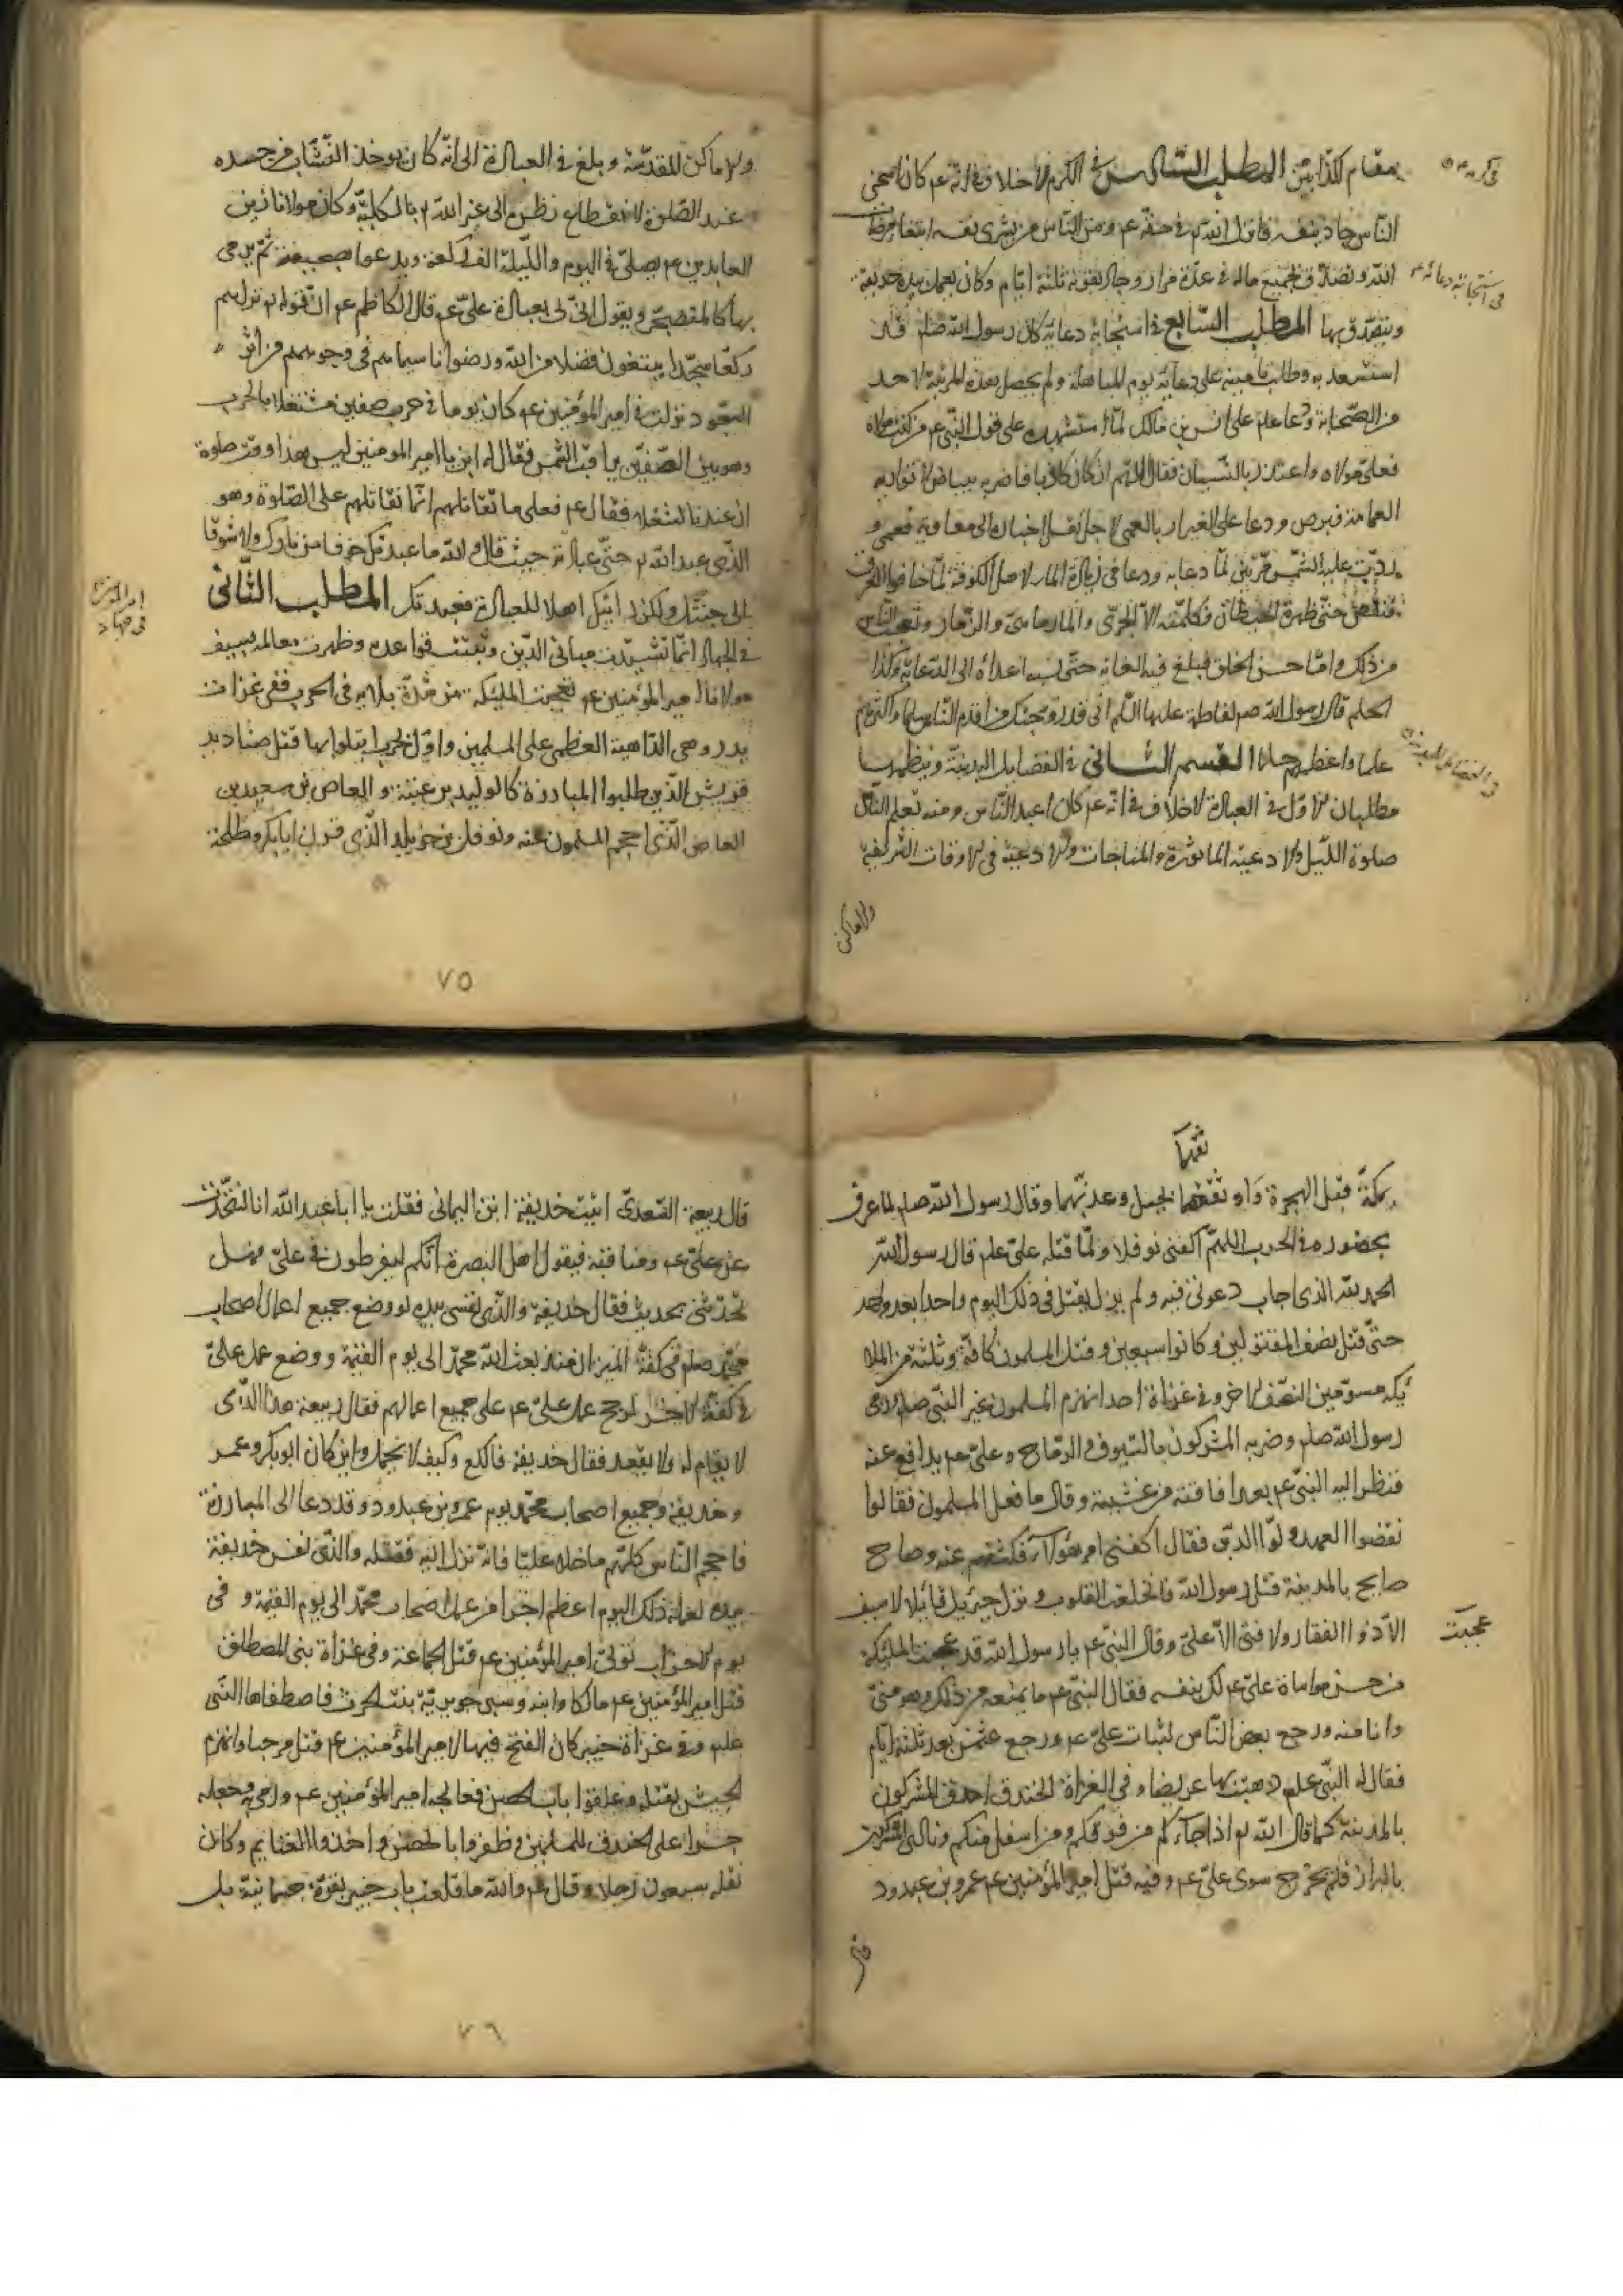 مقام الكذابين المطلب السادس في الكرم لا خلاف في انه عم كان اسخى
الناس جاد بنفسه فانزل الله تم في حقه عم ومن الناس من يشرى نفسه ابتغا مرضا
الله وتصدق بجميع ماله في عدة مرار وجاد بقوته ثلثة ايام وكان يعمل بيده حديقة
ويتصدق بها المطلب السابع في استجابة دعائه كان رسول الله صلم قد
استسعد به وطلب تامينه على دعائه يوم المباهلة ولم يحصل بهذه المرتبة لاحد
من الصحابة ودعا علم على انس بن مالك لما استشهده على قول النبي عم من كنت مولاه
فعلى مولاه واعتذر بالنسيان فقال اللهم ان كان كاذبا فاضربه ببياض لا تواريه
العمامة فبرص ودعا على الغيرار بالعمى لاجل نقل اخباره الى معاوية فعمى و
ردت عليه الشمس مرتين لما دعا به ودعا في زيادة الماء لاهل الكوفة لما خافوا الغرق
فنقص حتى ظهرت الحيطان فكلمته الا الجرى والمارماهى والزمار وتعجب الناس
من ذلك واما حسن الخلق فبلغ فيه الغاية حتى نسبه اعداه الى الدعابة وكذا
الحلم قال رسول الله صم لفاطمة عليها السلم انى قد زوجتك من اقدم الناس سلما واكثرهم
علما واعظمهم حلما القسم الثانى في الفضايل البدنية وينظمها
مطلبان الاول في العبادة لا خلاف في انه عم كان اعبد الناس ومنه تعلم الناس
صلوة الليل والادعية الماثورة والمناجات والادعية في الاوقات الشريفة
والاماكن
في كرمه عم
في استجابة دعائه عم
في الفضايل البدنية
والاماكن المقدسة وبلغ في العبادة الى انه كان يوخذ النشاب من جسده
عند الصلوة لانقطاع نظره الى غير الله تم بالكلية وكان مولانا زين
العابدين عم يصلى في اليوم والليلة الف ركعة ويدعوا بصحيفة ثم يرمى
بها كالمتضجر ويقول انى لى بعبادة على عم قال الكاظم عم ان قوله تم تراهم
ركعا سجدا يبتغون فضلا من الله ورضوانا سيماهم في وجوههم من اثر
السجود نزلت في امير المؤمنين عم كان يوما في حرب صفين مشتغلا بالحرب
وهو بين الصفين يراقب الشمس فقال له ابن يا امير المومنين ليس هذا وقت صلوة
ان عندنا لشغلا فقال عم فعلى ما نقاتلهم انما نقاتلهم على الصلوة وهو
الذى عبد الله تم حق عبادته حيث قال والله ما عبدتك خوفا من نارك ولا شوقا
الى جنتك ولكن رايتك اهلا للعبادة فعبدتك المطلب الثانى
في الجهاد انما تشيدت مبانى الدين وثبتت قواعده وظهرت معالمه بسيف
مولانا امير المؤمنين عم تعجبت المليكة من شدة بلائه في الحرب ففى غزات
بدر وهى الداهية العظمى على المسلمين واول حرب ابتلوا بها قتل صناديد
قريش الذين طلبوا المبارزة كالوليد بن عتبة والعاص بن سعيد بن
العاص الذى احجم المسلمون عنه ونوفل بن خويلد الذى قرن ابابكر وطلحة
٧٥
بمكة قبل الهجرة واوثقهما بحبل وعذبهما وقال رسول الله صلم لما عرف
ثقهما
بحضوره في الحرب اللهم اكفنى نوفلا ولما قتله على علم قال رسول الله
الحمد لله الذى اجاب دعوتى فيه ولم يزل يقتل في ذلك اليوم واحدا بعد واحد
حتى قتل نصف المقتولين وكانوا سبعين وقتل المسلمون كافة وثلثة من الملا
ئيكه مسومين النصف الاخر وفى غزاة احد انهزم المسلمون غير النبى صلم ورمى
رسول الله صلم وضربه المشركون بالسيوف والرماح وعلى عم يدافع عنه
فنظر اليه النبى عم بعد افاقته من غشيته وقال ما فعل المسلمون فقالوا
نقضوا العهد وولوا الدبر فقال اكفنى امر هؤلآء فكشفهم عنه وصاح
صايح بالمدينة قتل رسول الله فانخلعت القلوب ونزل جبرئيل قايلا لا سيف
الا ذو الفقار ولا فتى الا على وقال للنبى عم يا رسول الله قد عجبت المليكة
عجبت
من حسن مواساة على عم لك بنفسه فقال النبى عم ما يمنعه من ذلك وهو منى
وانا منه ورجع بعض الناس لثبات على عم ورجع عثمن بعد ثلثة ايام
فقال له النبى علم ذهبت بها عريضا وفى الغزاة الخندق احدق المشركون
بالمدينة كما قال الله تم اذ جاؤكم من فوقكم ومن اسفل منكم ونادى المشركون
بالبراز فلم يخرج سوى على عم وفيه قتل امير المؤمنين عم عمرو بن عبدود
قال
قال ربيعة السعدى اتيت حذيفة ابن اليمانى فقلت يا ابا عبد الله انا لنتحدث
عن على عم ومناقبه فيقول اهل البصرة انكم لتفرطون في على فهل
تحدثنى بحديث فقال حذيفة والذى نفسى بيده لو وضع جميع اعمال اصحاب
محمد صلم في كفة الميزان منذ بعث الله محمد الى يوم القيمة ووضع عمل على
في كفة الاخرى لرجح عمل على عم على جميع اعمالهم فقال ربيعة هذا الذى
لا يقام له ولا يقعد فقال حذيفة فالكع وكيف لا يحمل واين كان ابوبكر وعمر
وحذيفة وجميع اصحاب محمد يوم عمرو بن عبدود وقد دعا الى المبارزة
فاحجم الناس كلهم ما خلا عليا فانه نزل اليه فقتله والذى نفس حذيفة
بيده لعمله ذلك اليوم اعظم اجرا من عمل اصحاب محمد الى يوم القيمة وفى
يوم الاحزاب تولى امير المؤمنين عم قتل الجماعة وفى غزاة بنى المصطلق
قتل امير المؤمنين عم مالكا وابنه وسبى جويرية بنت الحرث فاصطفاها النبى
علم وفى غزاة خيبر كان الفتح فيها لامير المؤمنين عم قتل مرحبا وانهزم
الجيش بقتله وغلقوا باب الحصن فعالجه امير المؤمنين عم ورمى به وجعله
جسرا على الخندق للمسلمين وظفروا بالحصن واخذوا الغنايم وكان
نقله سبعون رجلا وقال عم والله ما قلعت باب خيبر بقوة جسمانية بل
٧٦